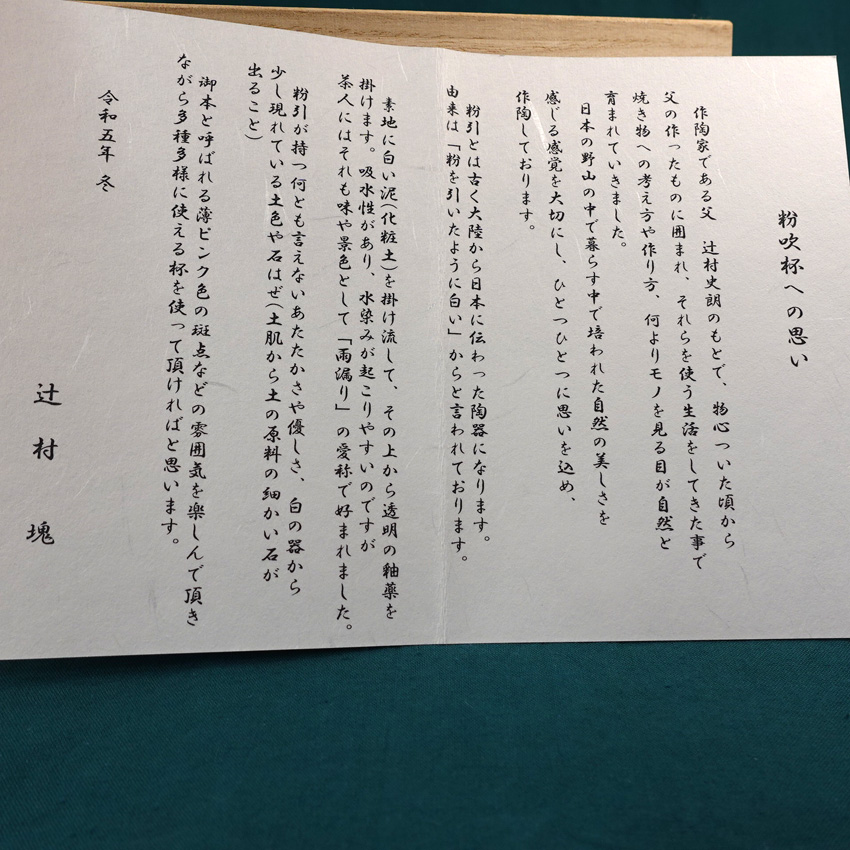 粉吹杯への思い
作陶家である父 辻村史朗のもとで、物心ついた頃から
父の作ったものに囲まれ、それらを使う生活をしてきた事で
焼き物への考え方や作り方、何よりモノを見る目が自然と
育まれていきました。
日本の野山の中で暮らす中で培われた自然の美しさを
感じる感覚を大切にし、ひとつひとつに思いを込め、
作陶しております。
粉引とは古く大陸から日本に伝わった陶器になります。
由来は「粉を引いたように白い」からと言われております。
素地に白い泥(化粧土)を掛け流して、その上から透明の釉薬を
掛けます。吸水性があり、水染みが起こりやすいのですが
茶人にはそれも味や景色として「雨漏り」の愛称で好まれました。
粉引が持つ何とも言えないあたたかさや優しさ、白の器から
少し現れている土色や石はぜ(土肌から土の原料の細かい石が
出ること)
御本と呼ばれる薄ピンク色の斑点などの雰囲気を楽しんで頂き
ながら多種多様に使える杯を使って頂ければと思います。
令和五年 冬
辻村 塊